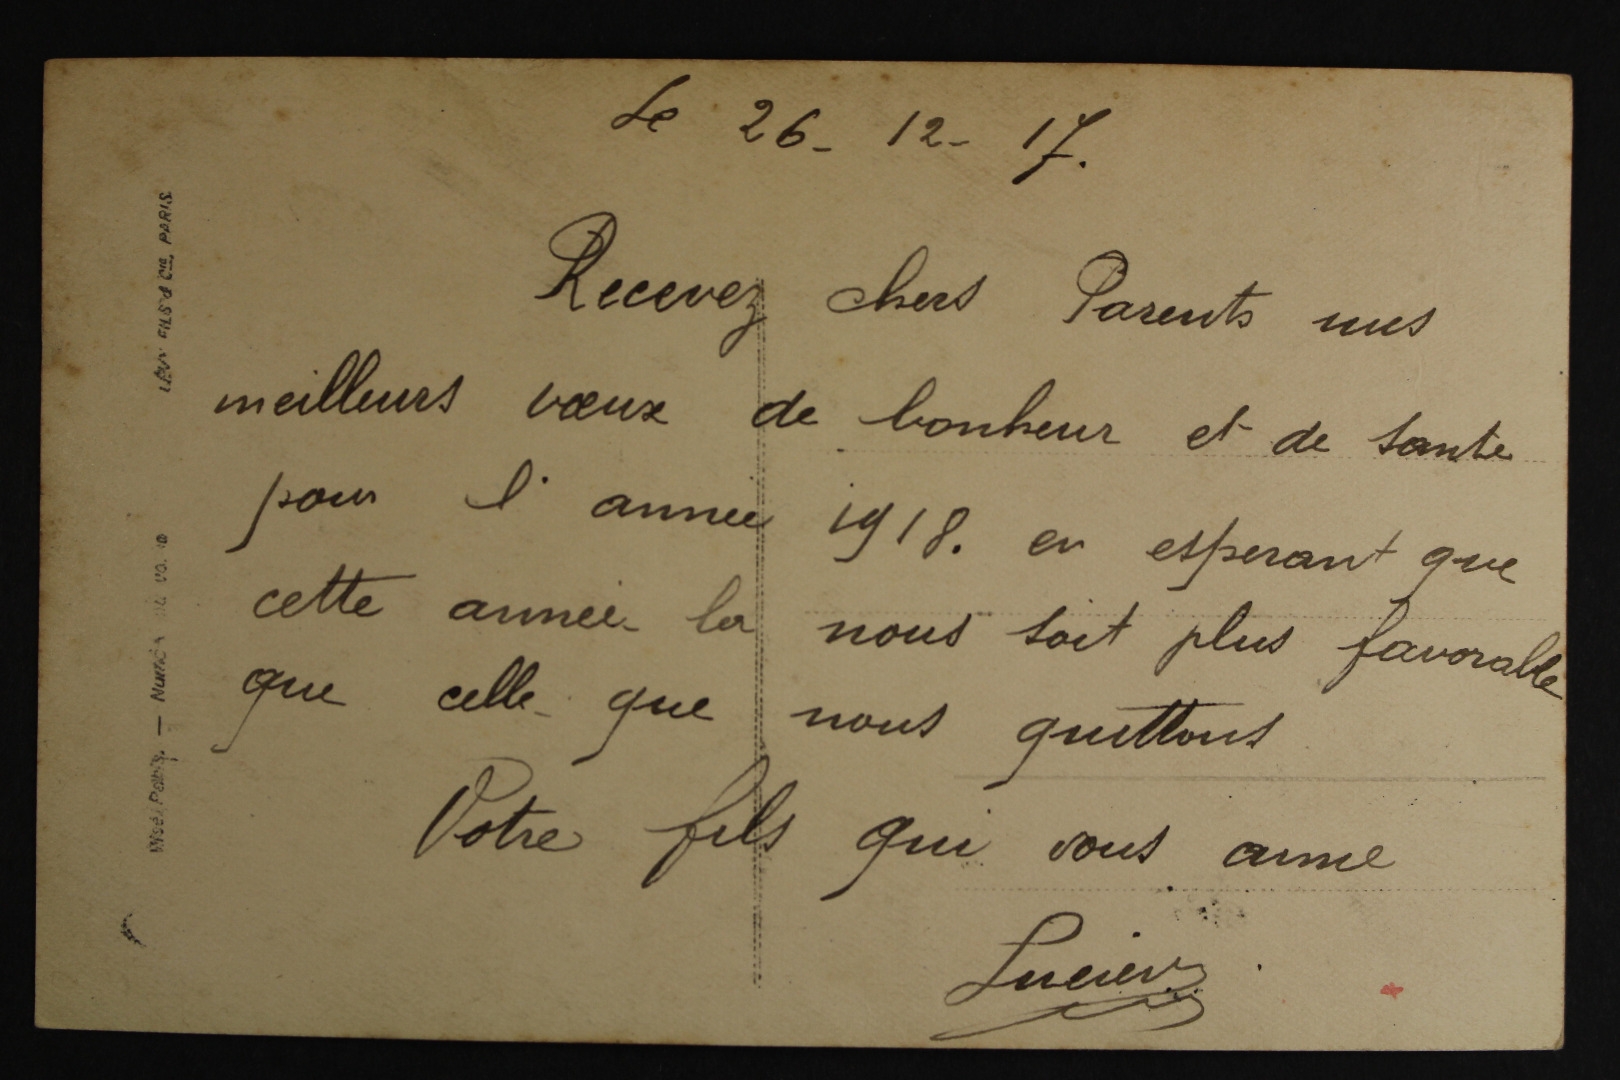 Le 26- 12- 17.
Recevez chers Parents mes
meilleurs vœux de bonheur et de sante
pour l'année 1918. en esperant que
cette année la nous soit plus favorable
que celle que nous quittons
Votre fils qui vous aime
Lucien
LÉVY FILS & Cie, PARIS
Visé, Paris. —